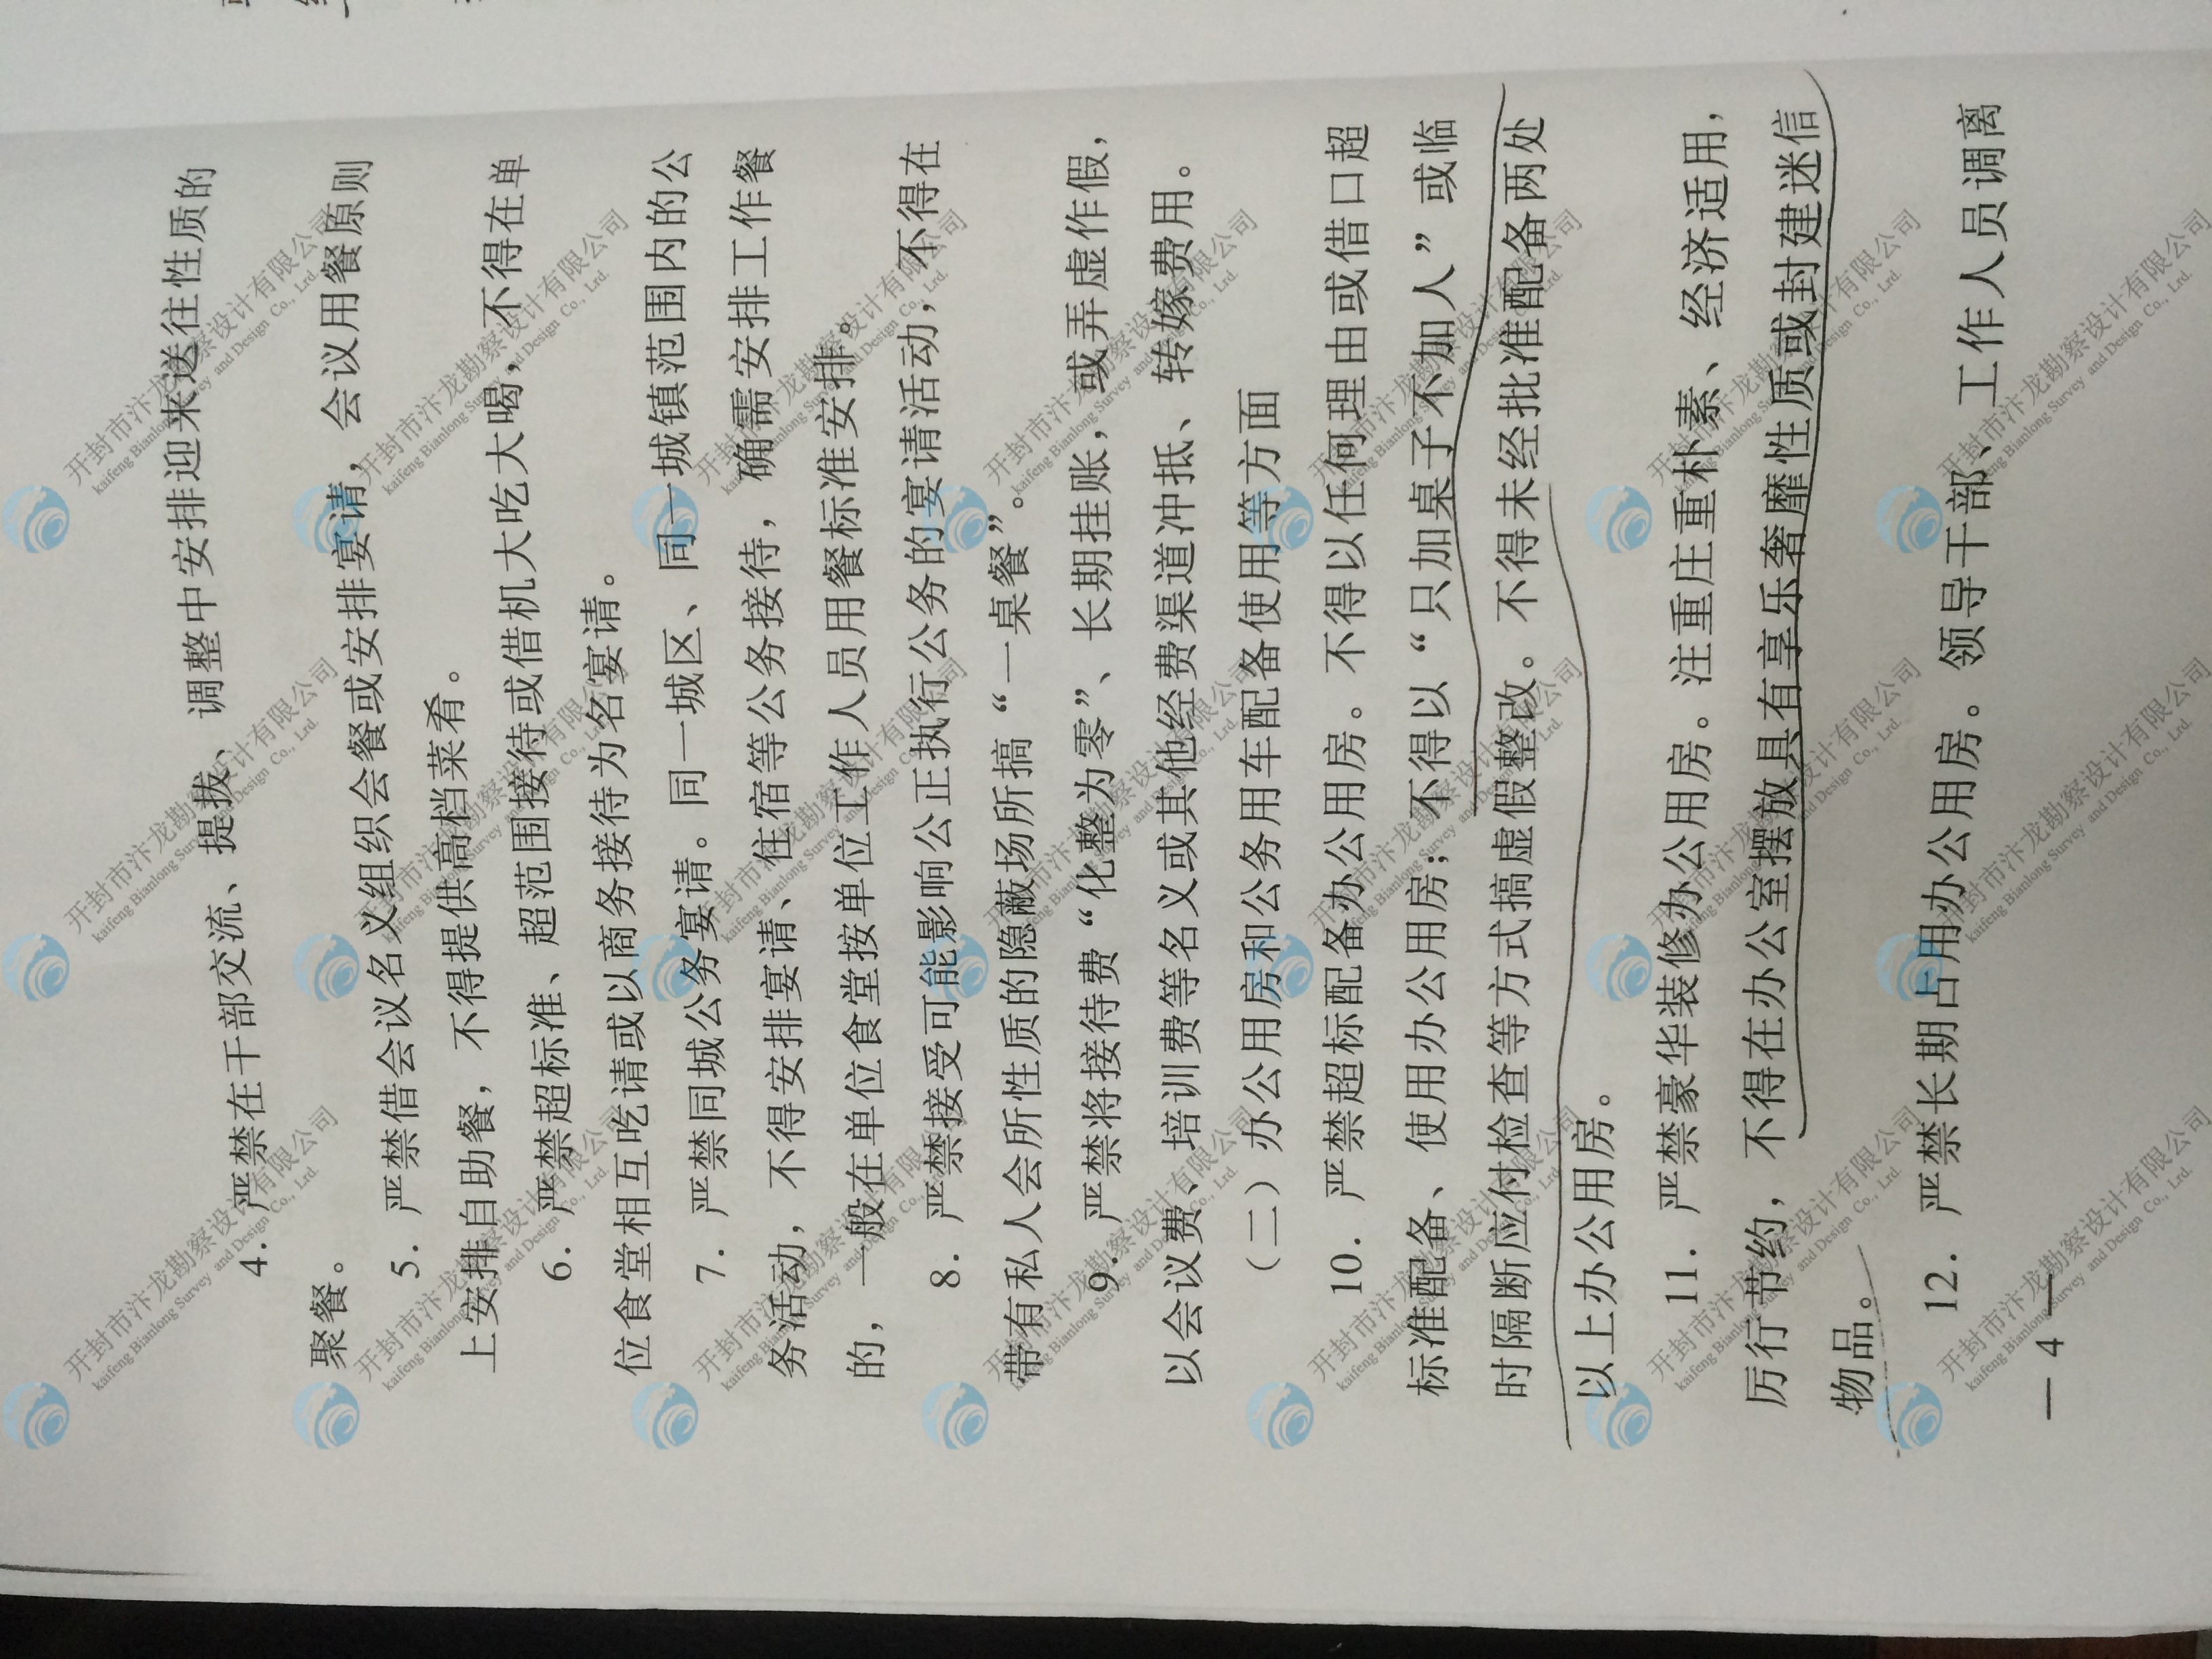 4. 严禁在干部交流、提拔、调整中安排迎来送往性质的
聚餐。
5. 严禁借会议名义组织会餐或安排宴请，会议用餐原则
上安排自助餐，不得提供高档菜肴。
6. 严禁超标准、超范围接待或借机大吃大喝，不得在单
位食堂相互吃请或以商务接待为名宴请。
7. 严禁同城公务宴请。同一城区、同一城镇范围内的公
务活动，不得安排宴请、住宿等公务接待，确需安排工作餐
的，一般在单位食堂按单位工作人员用餐标准安排。
8. 严禁接受可能影响公正执行公务的宴请活动，不得在
带有私人会所性质的隐蔽场所搞“一桌餐”。
9. 严禁将接待费“化整为零”、长期挂账，或弄虚作假，
以会议费、培训费等名义或其他经费渠道冲抵、转嫁费用。
（二）办公用房和公务用车配备使用等方面
10. 严禁超标配备办公用房。不得以任何理由或借口超
标准配备、使用办公用房；不得以“只加桌子不加人”或临
时隔断应付检查等方式搞虚假整改。不得未经批准配备两处
以上办公用房。
11. 严禁豪华装修办公用房。注重庄重朴素、经济适用，
厉行节约，不得在办公室摆放具有享乐奢靡性质或封建迷信
物品。
12. 严禁长期占用办公用房。领导干部、工作人员调离
— 4 —
开封市汴龙勘察设计有限公司
kaifeng Bianlong Survey and Design Co., Lrd.